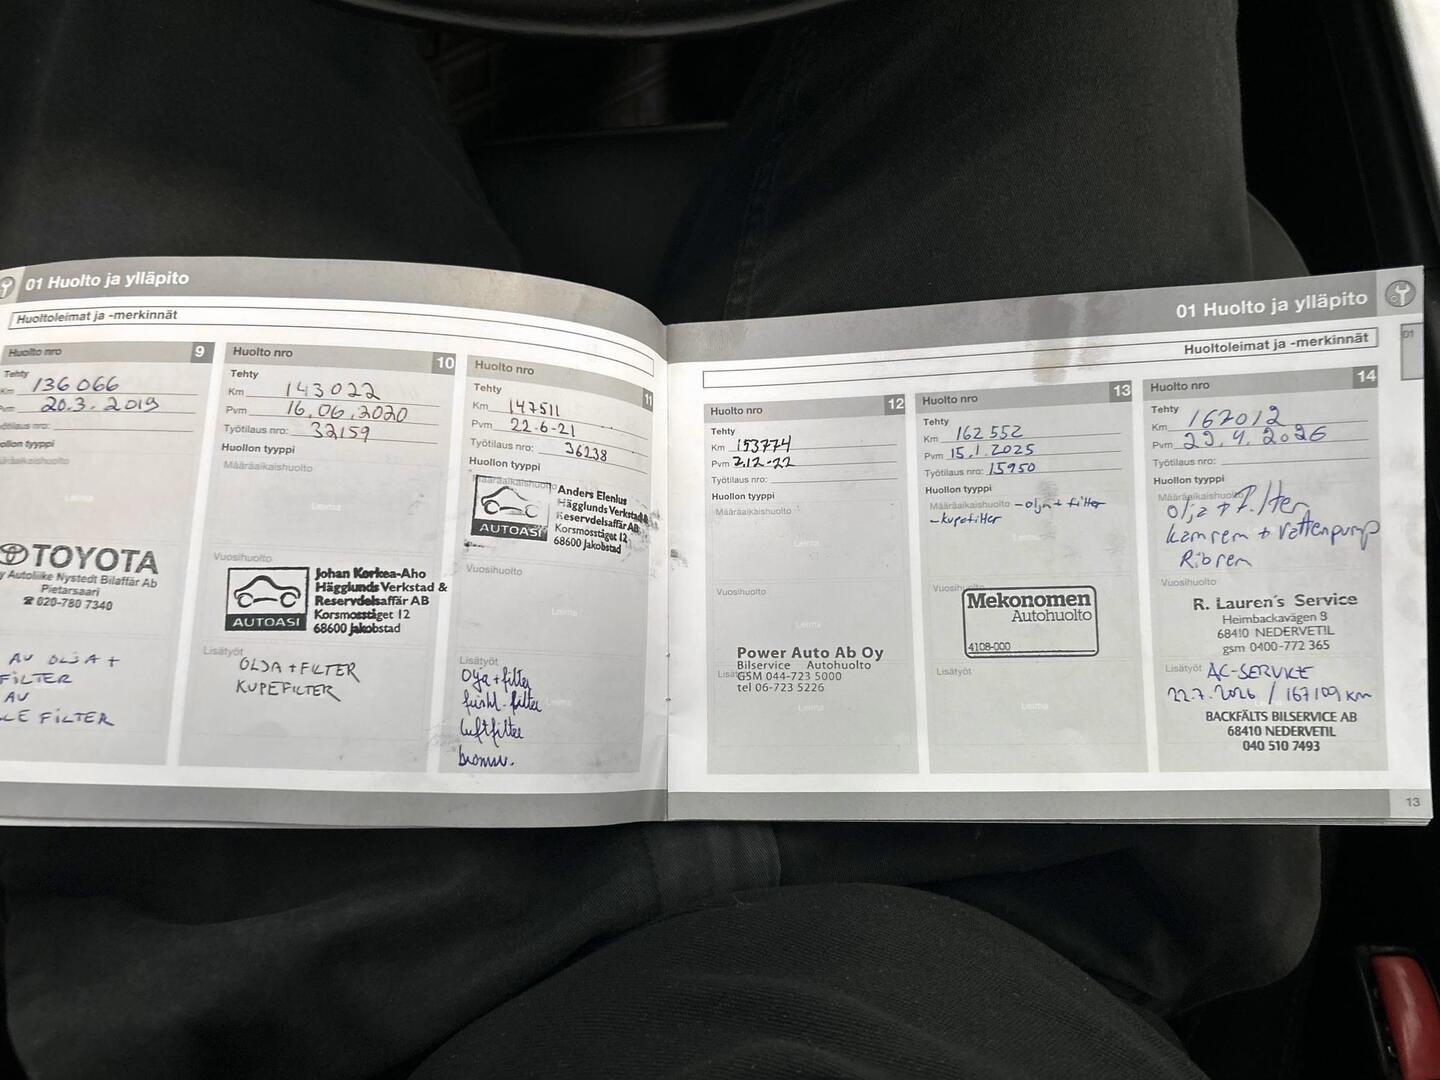 01 Huolto ja ylläpito
Huoltoleimat ja -merkinnät
Huolto nro 9
Tehty
Km 136066
Pvm 20.3.2019
Työtilaus nro:
Huollon tyyppi
Määräaikaishuolto
Leima
TOYOTA
y Autoliike Nystedt Bilaffär Ab
Pietarsaari
☎ 020-780 7340
AV OLJA +
FILTER
AV
LE FILTER
Huolto nro 10
Tehty
Km 143022
Pvm 16.06.2020
Työtilaus nro: 32159
Huollon tyyppi
Määräaikaishuolto
Leima
Vuosihuolto
AUTOASI
Johan Korkea-Aho
Hägglunds Verkstad &
Reservdelsaffär AB
Korsmosstäget 12
68600 Jakobstad
Lisätyöt
OLJA + FILTER
KUPEFILTER
Huolto nro 11
Tehty
Km 147511
Pvm 22-6-21
Työtilaus nro: 36238
Huollon tyyppi
Määräaikaishuolto
AUTOASI
Anders Elenius
Hägglunds Verkstad &
Reservdelsaffär AB
Korsmosstäget 12
68600 Jakobstad
Vuosihuolto
Leima
Lisätyöt
Olja + filter
filter
Luftfilter
01 Huolto ja ylläpito
01
Huoltoleimat ja -merkinnät
Huolto nro 12
Tehty
Km 153774
Pvm 2.12-22
Työtilaus nro:
Huollon tyyppi
Määräaikaishuolto
Leima
Vuosihuolto
Leima
Power Auto Ab Oy
Bilservice Autohuolto
Lisät GSM 044-723 5000
tel 06-723 5226
Leima
Huolto nro 13
Tehty
Km 162552
Pvm 15.1.2025
Työtilaus nro: 15950
Huollon tyyppi
Määräaikaishuolto - olja + filter
- kupefilter
Leima
Vuosih
Mekonomen
Autohuolto
4108-000
Lisätyöt
Leima
Huolto nro 14
Tehty
Km 167012
Pvm 4.2026
Työtilaus nro:
Huollon tyyppi
Määräaikaishuolto
Olja + filter
kamrem + vattenpump
Ribrem
Vuosihuolto
R. Lauren's Service
Heimbackavägen 8
68410 NEDERVETIL
gsm 0400-772 365
Lisätyöt AC-SERVICE
22.7.2026 / 167109 KM
BACKFÄLTS BILSERVICE AB
68410 NEDERVETIL
040 510 7493
13